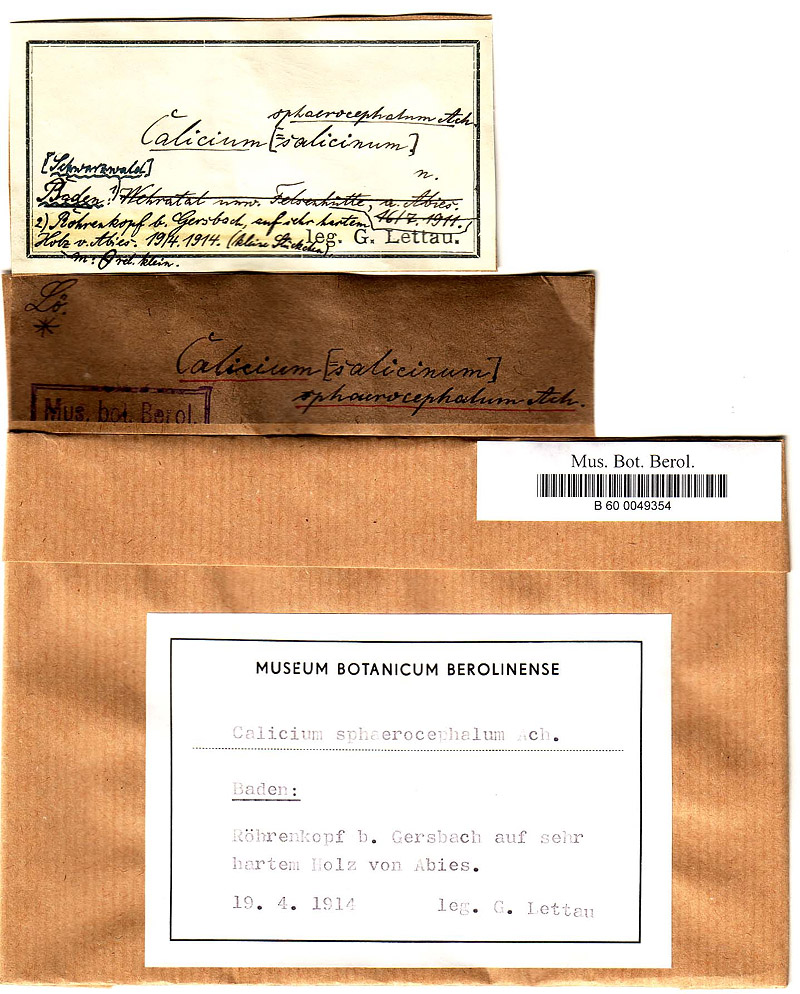 sphaerocephalum Ach.
Calicium [= salicinum]
[Schwarzwald]
n.
Baden: 1) Wehratal unw. Felsenhütte, a. Abies.
16/7. 1911.
2) Röhrenkopf b. Gersbach, auf sehr hartem
Holz v. Abies. 19/4. 1914. (kleine Stückchen)
leg. G. Lettau.
m: Ord. klein.
Lö.
*
Calicium [= salicinum]
sphaerocephalum Ach.
Mus. bot. Berol.
Mus. Bot. Berol.
B 60 0049354
MUSEUM BOTANICUM BEROLINENSE
Calicium sphaerocephalum Ach.
Baden:
Röhrenkopf b. Gersbach auf sehr
hartem Holz von Abies.
19. 4. 1914 leg. G. Lettau